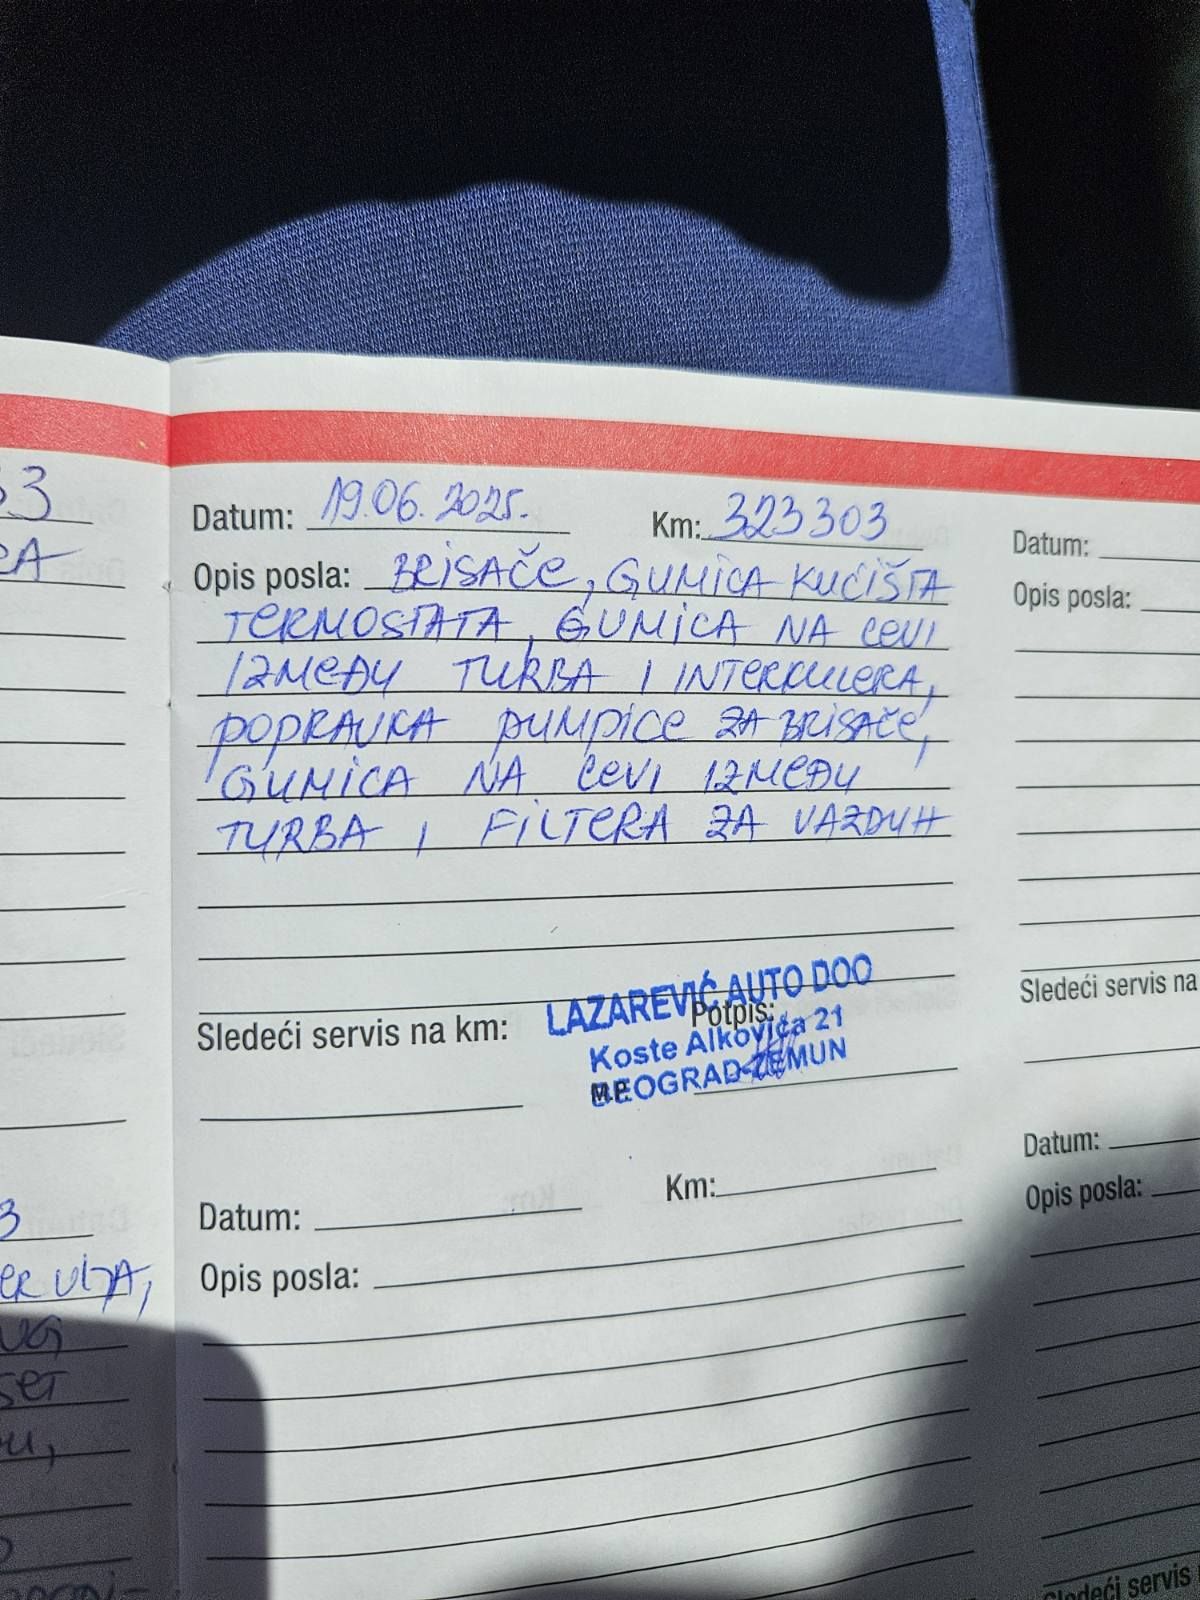 Datum: 19.06.2025. Km: 323303
Opis posla: BRISAČE, GUMICA KUĆIŠTA
TERMOSTATA, GUMICA NA CEVI
IZMEĐU TURBA I INTERKULERA,
POPRAVKA PUMPICE ZA BRISAČE,
GUMICA NA CEVI IZMEĐU
TURBA I FILTERA ZA VAZDUH
Sledeći servis na km:
Potpis:
M.P.
LAZAREVIĆ AUTO DOO
Koste Alkovića 21
BEOGRAD-ZEMUN
Datum: Km:
Opis posla:
Datum:
Opis posla:
Sledeći servis na
Datum:
Opis posla:
Sledeći servis